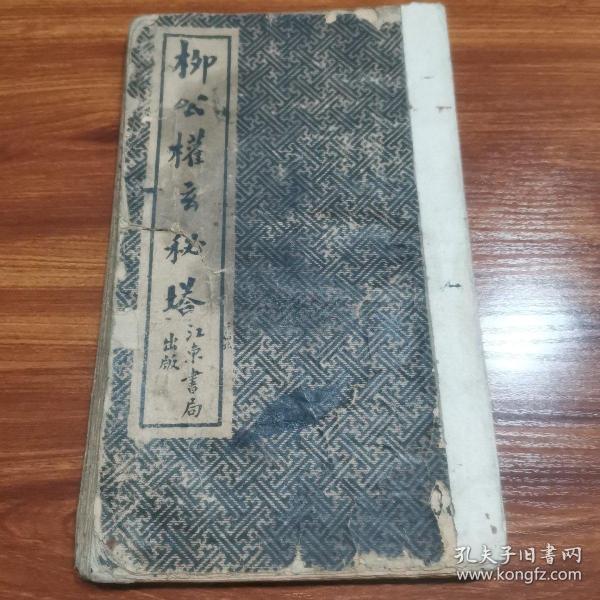 柳公權玄秘塔
江東書局
出版
孔夫子旧書网
www.kongfz.com